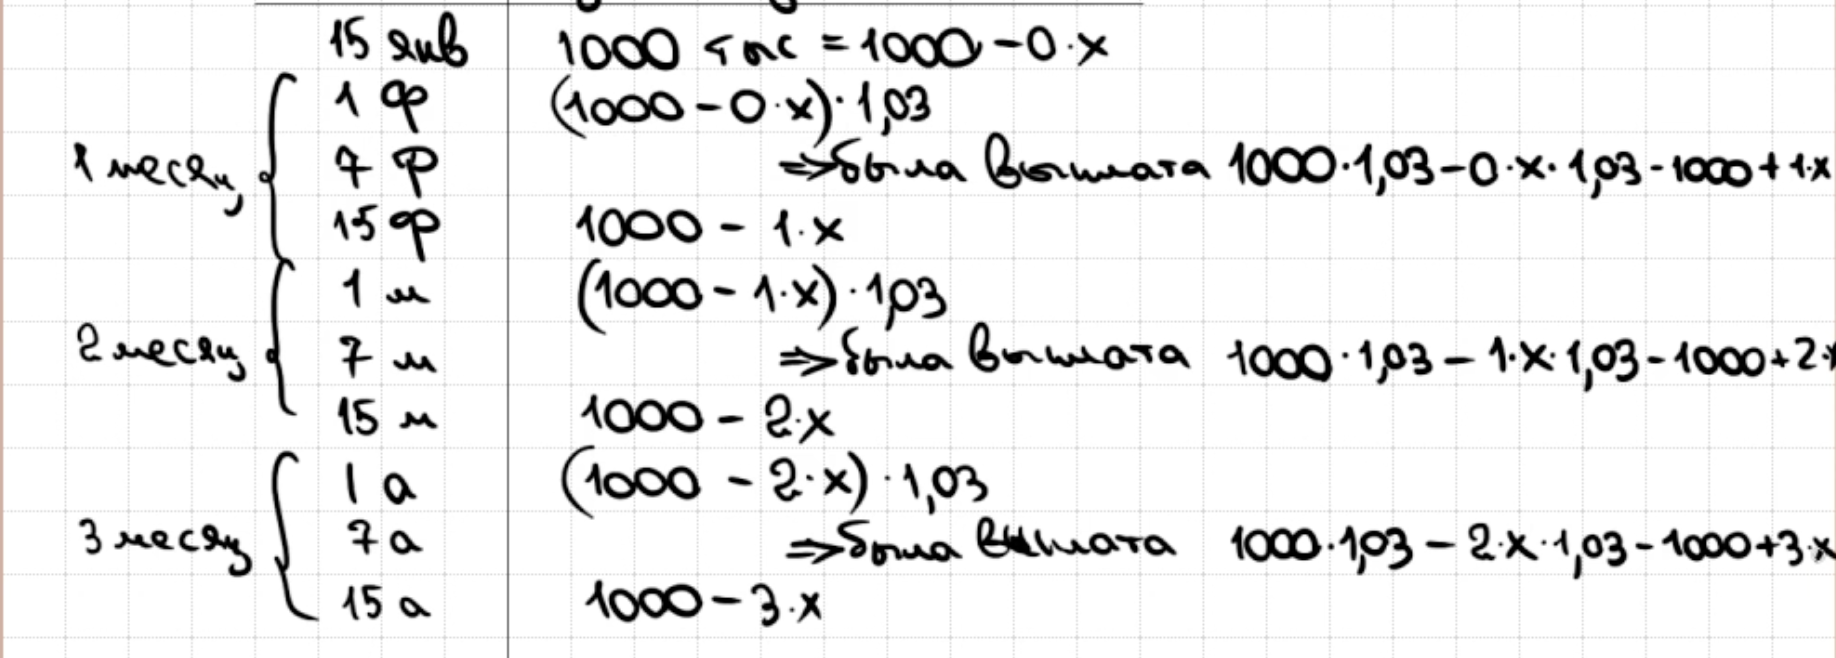 15 янв 1000 тыс = 1000 - 0·x
1 ф (1000 - 0·x)·1,03
1 месяц 7 ф ⇒ была выплата 1000·1,03 - 0·x·1,03 - 1000 + 1·x
15 ф 1000 - 1·x
1 м (1000 - 1·x)·1,03
2 месяц 7 м ⇒ была выплата 1000·1,03 - 1·x·1,03 - 1000 + 2·x
15 м 1000 - 2·x
1 а (1000 - 2·x)·1,03
3 месяц 7 а ⇒ была выплата 1000·1,03 - 2·x·1,03 - 1000 + 3·x
15 а 1000 - 3·x